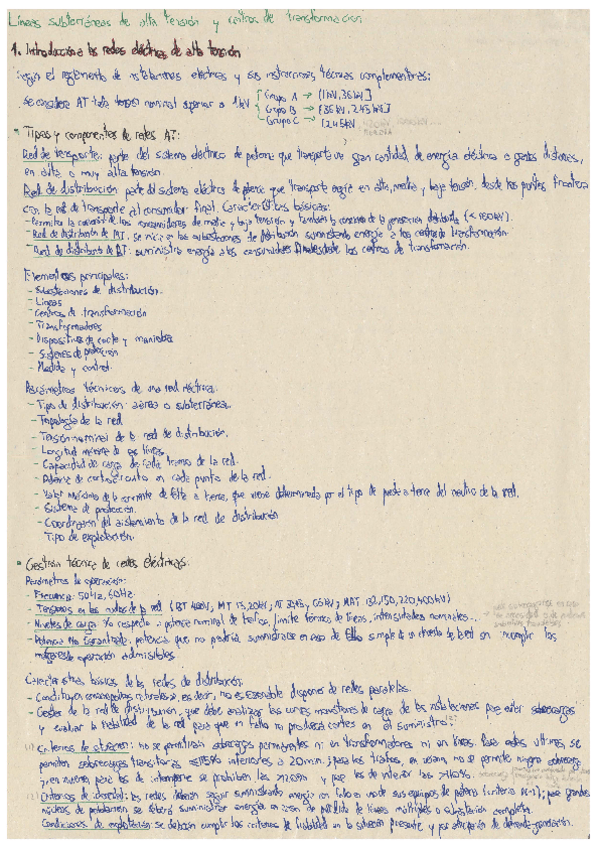 Líneas subterráneas de alta tensión y centros de transformación
1. Introducción a las redes eléctricas de alta tensión
Según el reglamento de instalaciones eléctricas y sus instrucciones técnicas complementarias:
Se considera AT toda tensión nominal superior a 1kV
Grupo A → (1kV, 36kV]
Grupo B → [36kV, 245kV]
Grupo C → [245kV
Tipos y componentes de redes AT:
Red de transporte: parte del sistema eléctrico de potencia que transporta gran cantidad de energía eléctrica a grandes distancias,
en alta o muy alta tensión.
Red de distribución parte del sistema eléctrico de potencia que transporta energía en alta, media y baja tensión, desde los puntos frontera
con la red de transporte al consumidor final. Características básicas:
- Permitir la conexión de los consumidores de media y baja tensión y también la conexión de la generación distribuida
- Red de distribución de MT: se inicia en las subestaciones de distribución suministrando energía a los centros de transformación.
- Red de distribución de BT: suministra energía a los consumidores finales desde los centros de transformación.
Elementos principales:
- Subestaciones de distribución.
- Líneas
- Centros de transformación
- Transformadores
- Dispositivos de corte y maniobra
- Sistemas de protección
- Medida y control.
Parámetros técnicos de una red eléctrica:
- Tipo de distribución: aérea o subterránea.
- Topología de la red
- Tensión nominal de la red de distribución.
- Longitud máxima de las líneas
- Capacidad de carga de cada tramo de la red.
- Potencia de cortocircuito en cada punto de la red.
- Valor máximo de la corriente de falta a tierra, que viene determinada por el tipo de puesta a tierra del neutro de la red.
- Sistema de protección.
- Coordinación del aislamiento de la red de distribución
Tipo de explotación.
Gestión técnica de redes eléctricas:
Parámetros de operación:
- Frecuencia: 50Hz, 60Hz.
- Tensiones en los nudos de la red
- Niveles de carga respecto: potencia nominal de trafos, límite térmico de líneas, intensidades nominales...
- Potencia No Garantizada: potencia que no podría suministrarse en caso de fallo simple de un circuito de la red sin cumplir los
márgenes de operación admisibles.
Características básicas de las redes de distribución:
- Constituyen monopolios naturales, es decir, no es razonable disponer de redes paralelas.
- Gestor de la red de distribución, que debe analizar las curvas monótonas de carga de las instalaciones para evitar sobrecargas
y evaluar la fiabilidad de la red para que un fallo no produzca cortes en el suministro:
Criterios de operación: no se permitirán sobrecargas permanentes ni en transformadores ni en líneas. Para estas últimas se
permiten sobrecargas transitorias ≤15% inferiores a 20min.; para los trafos, en verano, no se permite ninguna sobrecarga
y en invierno para los de intemperie se prohíben las >20% y para los de interior las >10%.
Criterios de diseño: las redes deberán seguir suministrando energía con fallo en uno de sus equipos de potencia (criterio n-1); para grandes
núcleos de población se deberá suministrar energía en caso de pérdida de líneas múltiples o subestación completa.
Condiciones de explotación: se deberán cumplir los criterios de fiabilidad en la situación presente y por anticipación de demanda-generación.